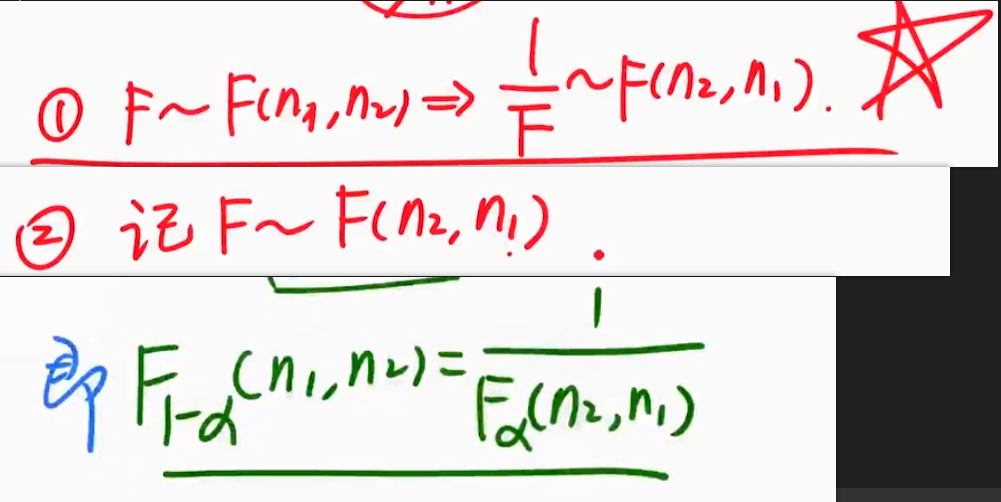 ① F~F(n₁,n₂)⇒ 1/F ~F(n₂,n₁).
② 记 F~F(n₂,n₁).
即 F₁₋α(n₁,n₂)= 1/Fα(n₂,n₁)